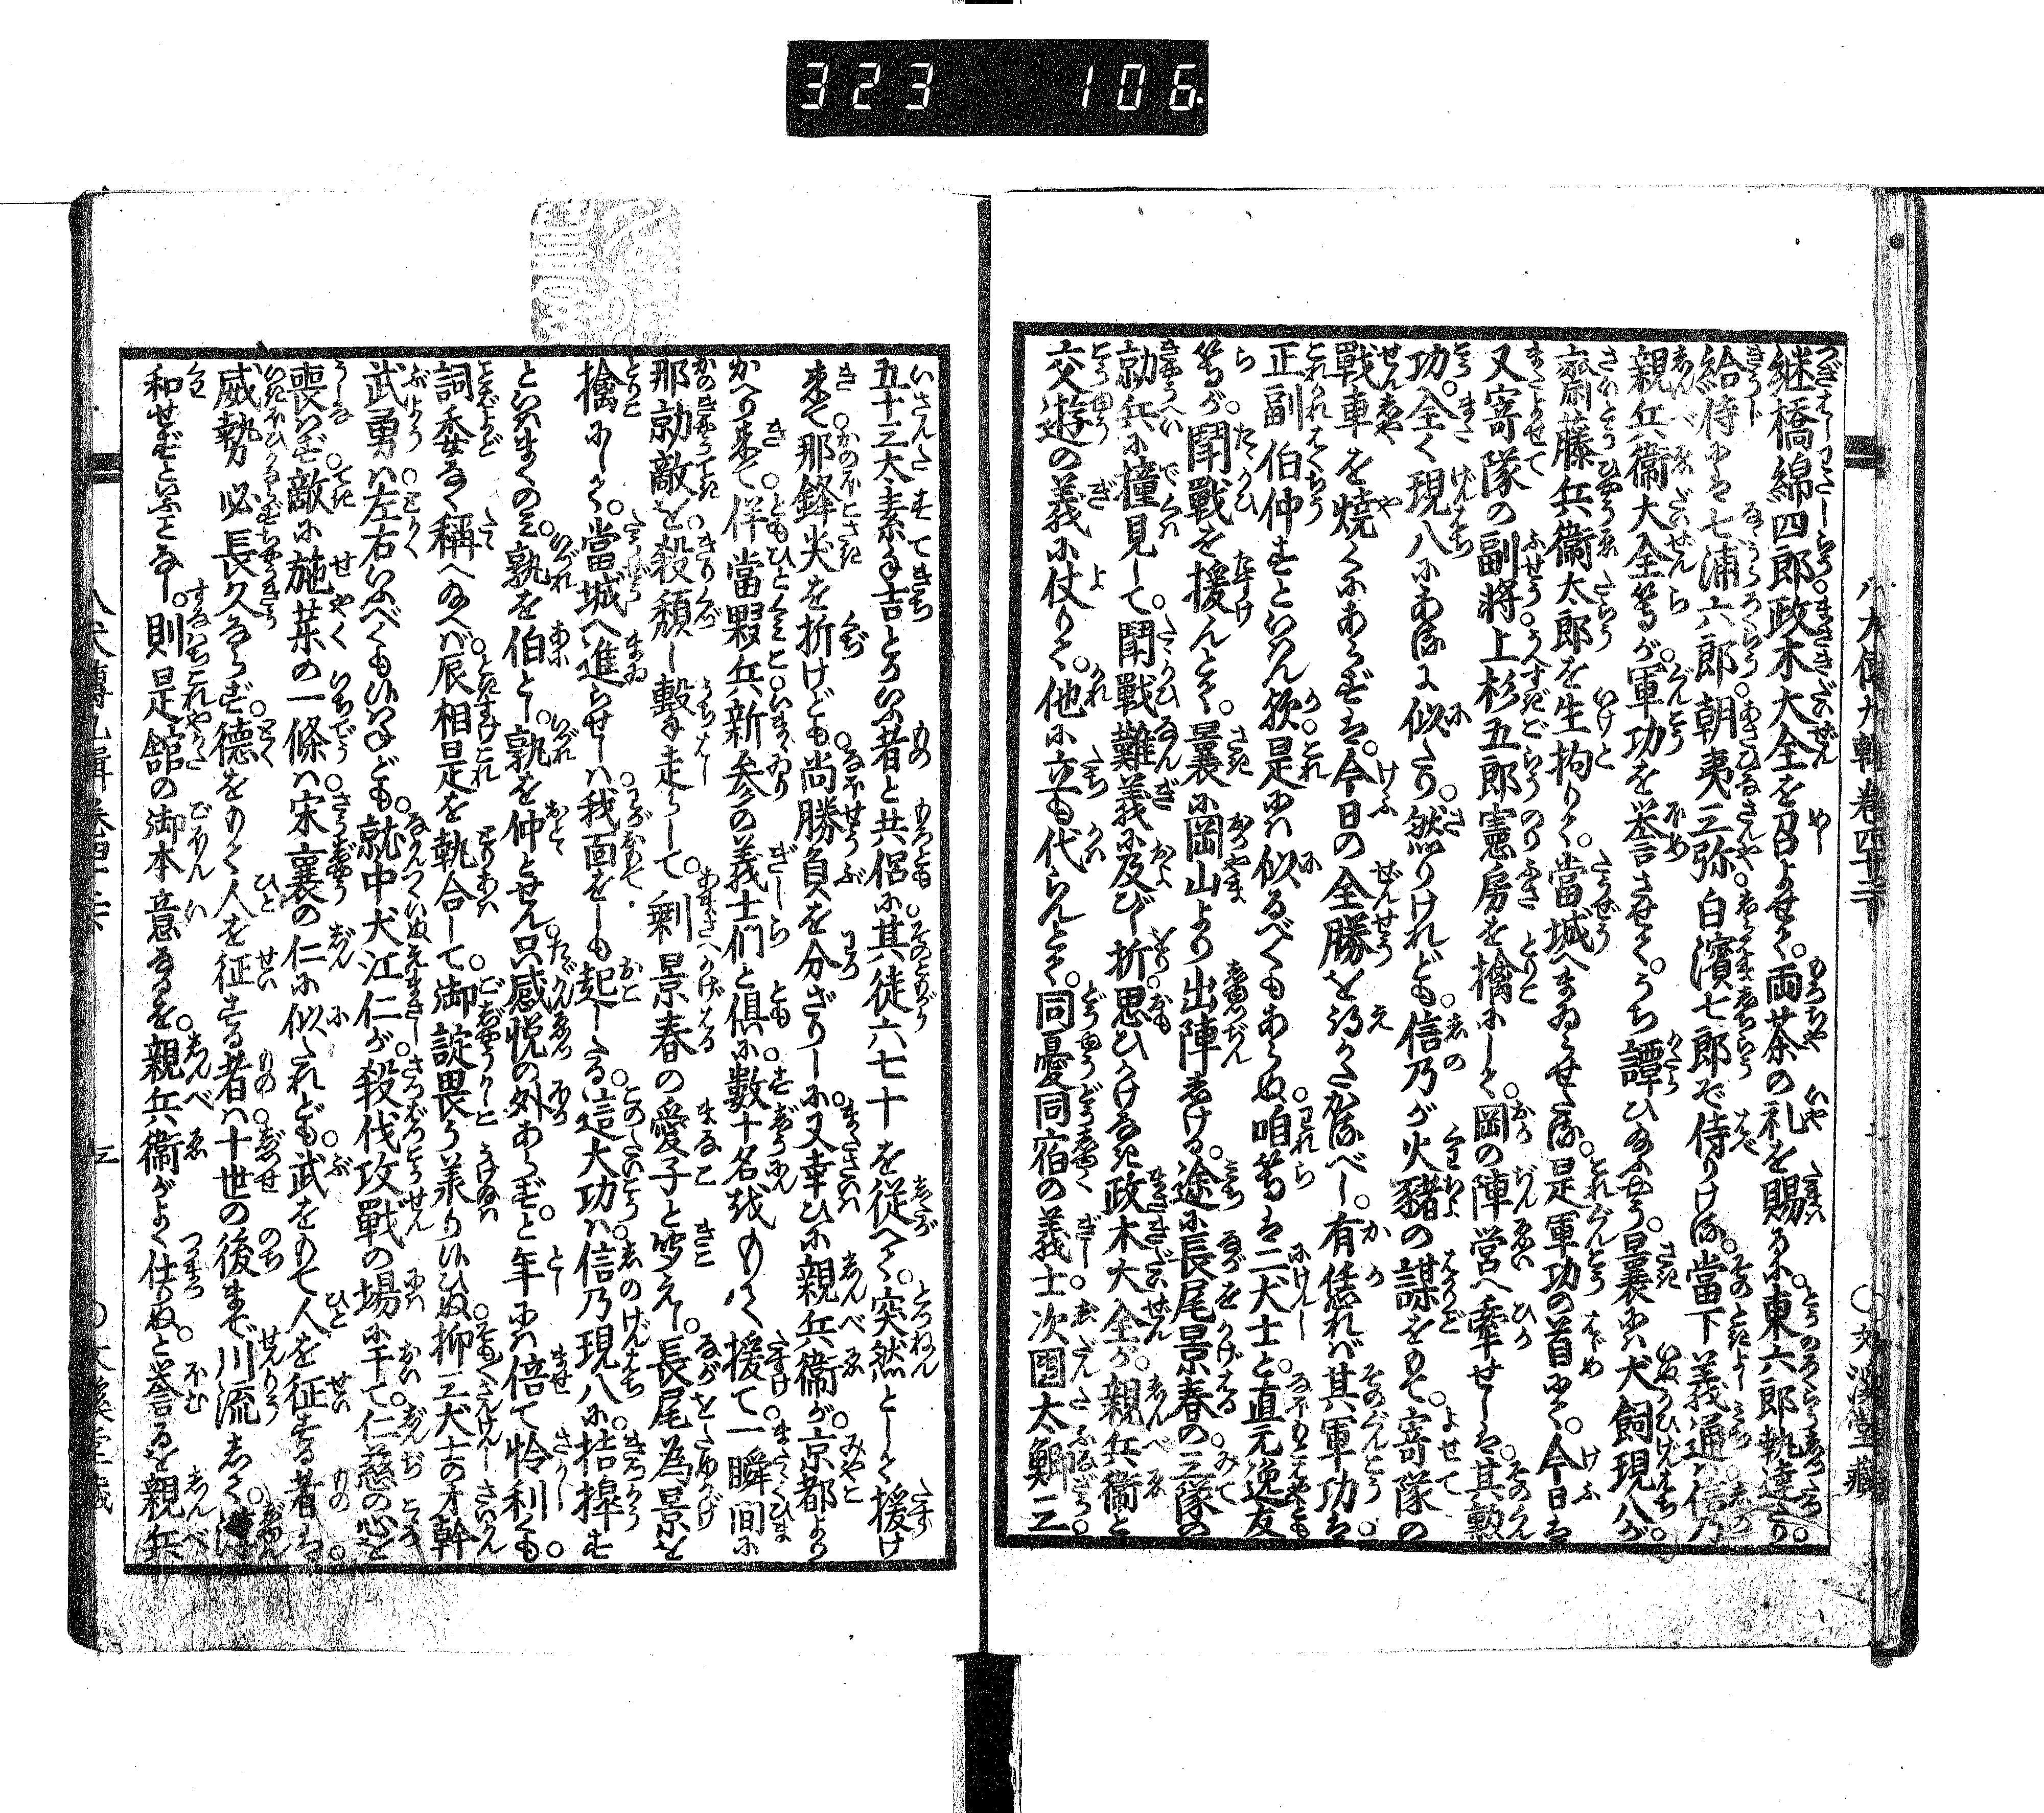 323 106
八犬傳九輯巻四十二下
○文溪堂藏
継橋綿四郎政木大全を召よせて。両茶の礼を賜るに東六郎執達たり。
給侍には七浦六郎朝夷三弥白濱七郎ぞ侍りける。當下義通信乃
親兵衛大全等が軍功を誉させて。うち譚ひ給ふやう。曩には犬飼現八が
齋藤兵衛太郎を生拘りて。當城へまゐらせたる。是軍功の首にて。今日は
又寄隊の副将上杉五郎憲房を擒にして。岡の陣営へ牽せしは。其勲
功。全く現八にあるに似たり然りけれども。信乃が火猪の謀をもて。寄隊の
戦車を焼くにあらずは。今日の全勝を得がたかるべし。有恁れば其軍功は
正副伯仲すといはん欤。是には似るべくもあらぬ。咱等は二犬士と。直元逸友
等が。鬪戦を援んとて。曩に岡山より出陣しける。途に長尾景春の三隊の
勍兵に撞見して。鬪戦難義に及びし折。思ひがけなき政木大全が。親兵衛と
交遊の義に仗りて。他に立も代らんとて。同憂同宿の義士次團太鯽三
五十三太素手吉とかいふ者と共侶に其徒六七十を従へて。突然として援け
来て那鋒尖を折けども尚勝負を分ざりしに。又幸ひに親兵衛が。京都より
かへり来て。伴當夥兵新参の義士們と倶に。数十名をもて援て。一瞬間に
那勍敵を。殺頽し撃走らして。剰景春の愛子と聞えし。長尾為景を
擒にして。當城へ進らせしは。我面をしも起したる。這大功は信乃現八に。拮掉す
といはまくのみ。孰を伯とし。孰を仲とせん。只感悦の外あらず。と年には倍て怜利くも。
詞委なく稱へ給へば。辰相是を執合して。御諚畏う承り候ひぬ。抑三犬士の才幹
武勇は左右いふべくも候はねども。就中犬江仁が。殺伐攻戦の場に于て。仁慈の心を
喪はず敵に施薬の一條は。宋襄の仁に似たれども。武をもて人を征する者は。
威勢必長久ならず。徳をもて人を征する者は。十世の後まで川流して。
和せずといふことなし。則是館の御本意なるを。親兵衛がよく仕りぬ。と誉るを親兵
八犬傳九輯巻四十二下
三
○文溪堂藏